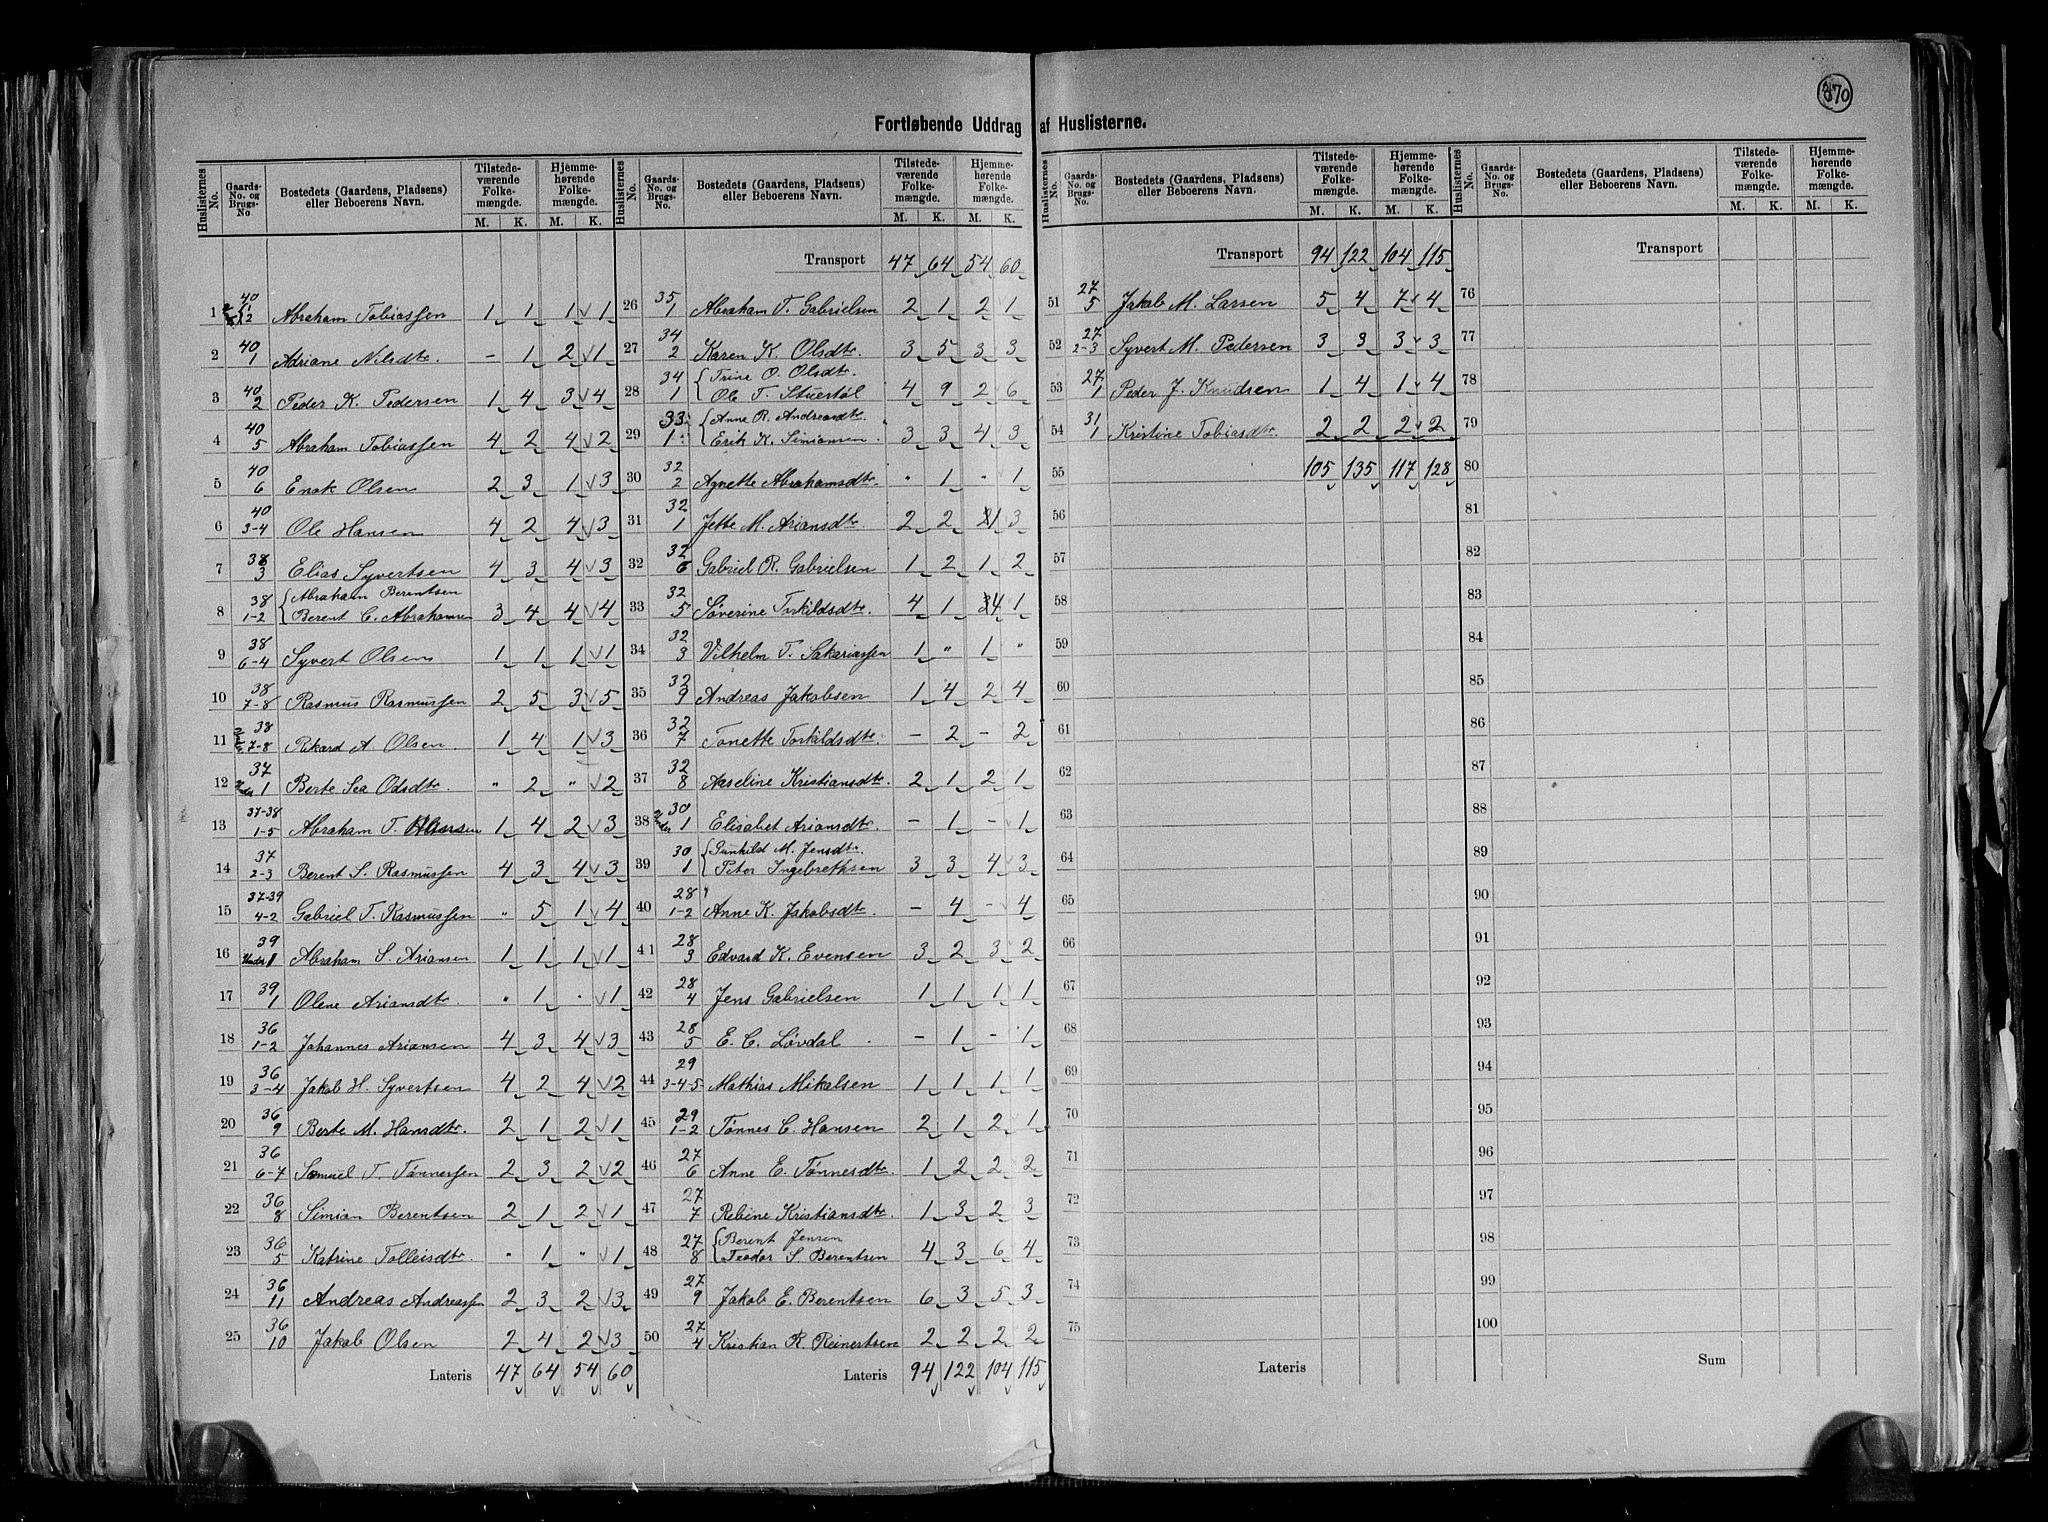 870
Fortløbende Uddrag af Huslisterne.
Huslisternes No. Gaards-No. og Brugs-No. Bostedets (Gaardens, Pladsens) eller Beboerens Navn. Tilstedeværende Folkemængde. M. K. Hjemmehørende Folkemængde. M. K.
1 40 12 Abraham Tobiassen 1 1 1 1
2 40 1 Adriane Nilsdtr. – 1 2 1
3 40 2 Peder K. Pedersen 1 4 3 4
4 40 5 Abraham Tobiassen 4 2 4 2
5 40 6 Enok Olsen 2 3 1 3
6 40 3-4 Ole Hansen 4 2 4 3
7 38 3 Elias Syvertsen 4 3 4 3
8 38 1-2 { Abraham Berentsen
Berent C. Abrahamsen 3 4 4 4
9 38 6-4 Syvert Olsen 1 1 1 1
10 38 7-8 Rasmus Rasmussen 2 5 3 5
11 38 7-8 Rikard A. Olsen 1 4 1 3
12 37 Under 1 Berte Sea Odsdtr. " 2 " 2
13 37-38 1-5 Abraham T. 1 4 2 3
14 37 2-3 Berent S. Rasmussen 4 3 4 3
15 37-39 4-2 Gabriel T. Rasmussen " 5 1 4
16 39 Under 1 Abraham S. Ariansen 1 1 1 1
17 39 1 Olene Ariansdtr. " 1 " 1
18 36 1-2 Johannes Ariansen 4 3 4 3
19 36 3-4 Jakob H. Syvertsen 4 2 4 2
20 36 9 Berte M. Hansdtr. 2 1 2 1
21 36 6-7 Samuel T. Tønnessen 2 3 2 2
22 36 8 Simian Berentsen 2 1 2 1
23 36 5 Katrine Tolleisdtr. " 1 " 1
24 36 11 Andreas Andreassen 2 3 2 3
25 36 10 Jakob Olsen 2 4 2 3
Lateris 47 64 54 60
Huslisternes No. Gaards-No. og Brugs-No. Bostedets (Gaardens, Pladsens) eller Beboerens Navn. Tilstedeværende Folkemængde. M. K. Hjemmehørende Folkemængde. M. K.
Transport 47 64 54 60
26 35 1 Abraham T. Gabrielsen 2 1 2 1
27 34 2 Karen K. Olsdtr. 3 5 3 3
28 34 1 { Trine O. Olsdtr.
Ole T. Stuestøl 4 9 2 6
29 33 1 { Anne R. Andreasdtr.
Erik K. Simiansen 3 3 4 3
30 32 2 Agnette Abrahamsdtr. " 1 " 1
31 32 1 Jette M. Ariansdtr. 2 2 1 3
32 32 6 Gabriel R. Gabrielsen 1 2 1 2
33 32 5 Søverine Torkildsdtr. 4 1 4 1
34 32 3 Vilhelm T. Sakariassen 1 " 1 "
35 32 9 Andreas Jakobsen 1 4 2 4
36 32 7 Tonette Torkildsdtr. – 2 – 2
37 32 8 Aaseline Kristiansdtr. 2 1 2 1
38 30 Under 1 Elisabet Ariansdtr. – 1 – 1
39 30 1 { Gunhild M. Jensdtr.
Peter Ingebrethsen 3 3 4 3
40 28 1-2 Anne K. Jakobsdtr. – 4 – 4
41 28 3 Edvard K. Evensen 3 2 3 2
42 28 4 Jens Gabrielsen 1 1 1 1
43 28 5 E. C. Løvdal – 1 – 1
44 29 3-4-5 Mathias Mikalsen 1 1 1 1
45 29 1-2 Tønnes C. Hansen 2 1 2 1
46 27 6 Anne E. Tønnesdtr. 1 2 2 2
47 27 7 Rebine Kristiansdtr. 1 3 2 3
48 27 8 { Berent Jensen
Teodor S. Berentsen 4 3 6 4
49 27 9 Jakob E. Berentsen 6 3 5 3
50 27 4 Kristian R. Reinertsen 2 2 2 2
Lateris 94 122 104 115
Huslisternes No. Gaards-No. og Brugs-No. Bostedets (Gaardens, Pladsens) eller Beboerens Navn. Tilstedeværende Folkemængde. M. K. Hjemmehørende Folkemængde. M. K.
Transport 94 122 104 115
51 27 5 Jakob M. Larsen 5 4 7 4
52 27 2-3 Syvert M. Pedersen 3 3 3 3
53 27 1 Peder J. Knudsen 1 4 1 4
54 31 1 Kristine Tobiasdtr. 2 2 2 2
55 105 135 117 128
56
57
58
59
60
61
62
63
64
65
66
67
68
69
70
71
72
73
74
75
Lateris
Huslisternes No. Gaards-No. og Brugs-No. Bostedets (Gaardens, Pladsens) eller Beboerens Navn. Tilstedeværende Folkemængde. M. K. Hjemmehørende Folkemængde. M. K.
Transport
76
77
78
79
80
81
82
83
84
85
86
87
88
89
90
91
92
93
94
95
96
97
98
99
100
Sum